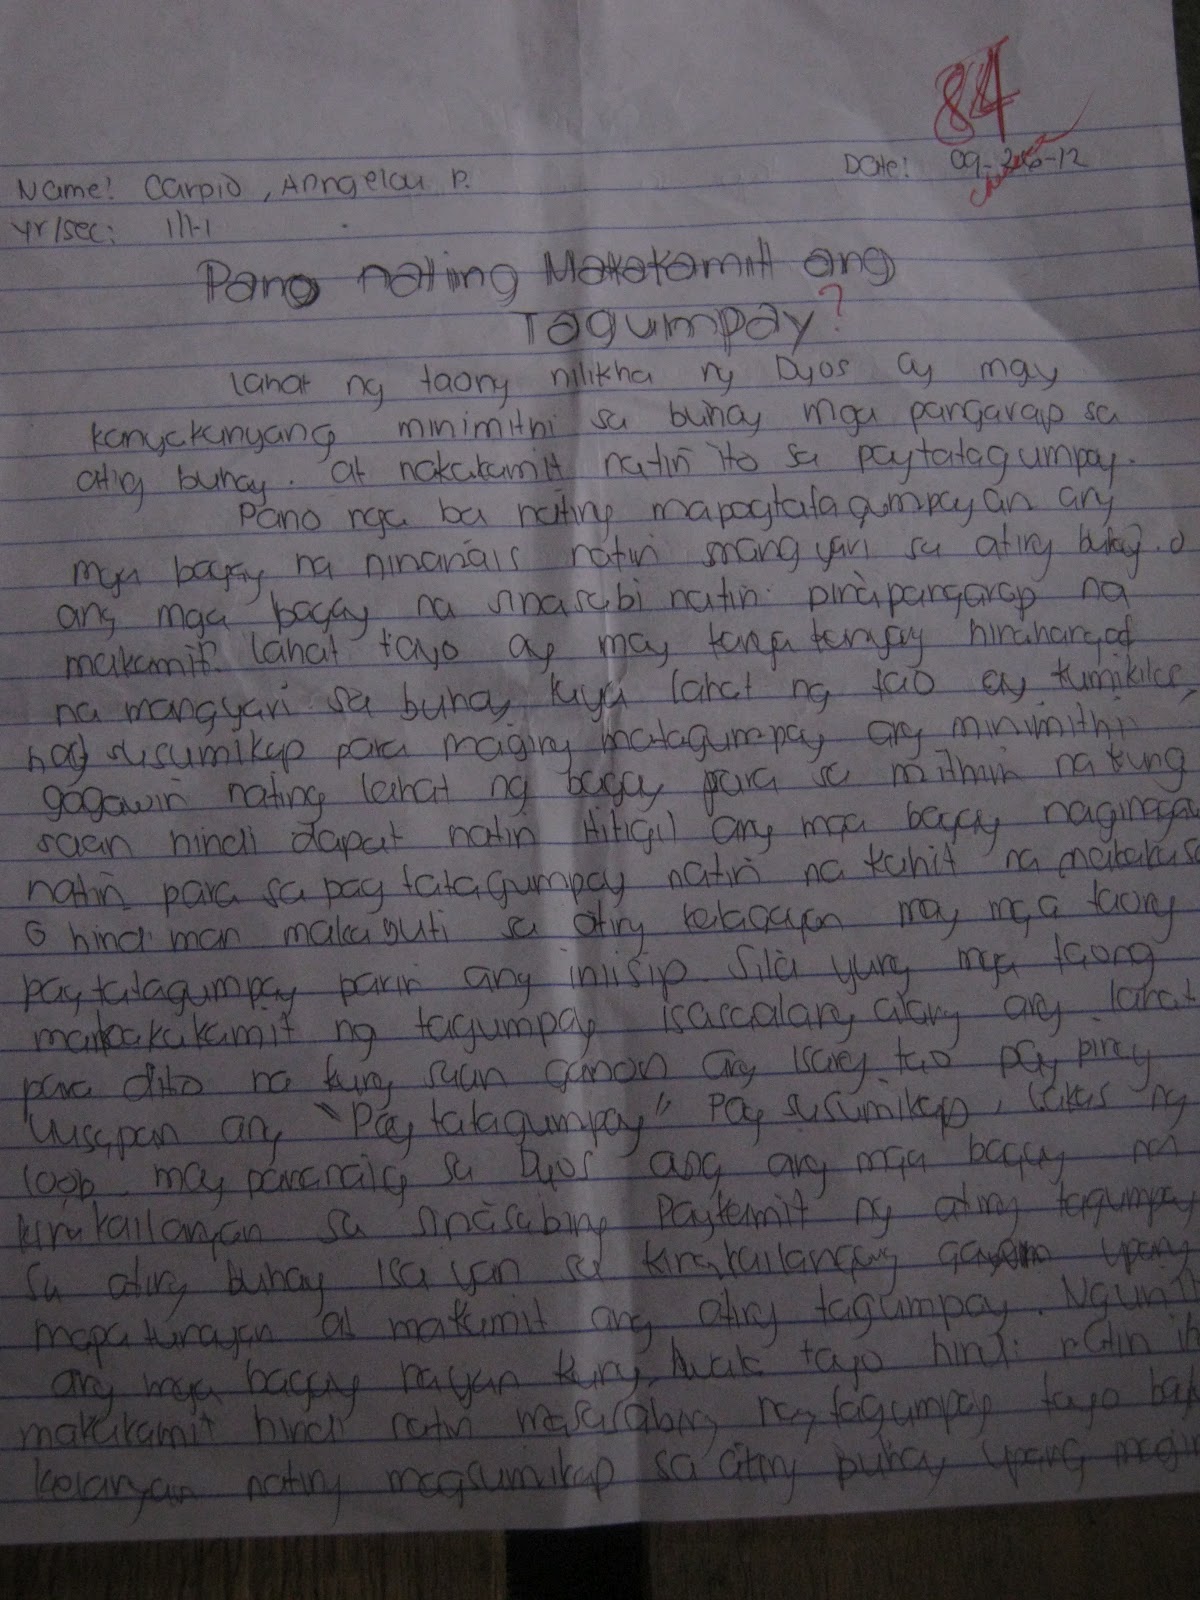 84
Name: Carpio, Anngelou P.
Date: 09-26-12
Yr/sec: 1/1-1
Pano nating Makakamit ang
Tagumpay?
Lahat ng taong nilikha ng Dyos ay may
kanyakanyang minimithi sa buhay mga pangarap sa
ating buhay. at nakakamit natin ito sa pagtatagumpay.
Pano nga ba nating mapagtatagumpayan ang
mga bagay na ninanais natin mangyari sa ating buhay. o
ang mga bagay na sinasabi natin pinapangarap na
makamit. Lahat tayo ay may kanya kanyay hinahangad
na mangyari sa buhay kaya lahat ng tao ay kumikilos,
nag susumikap para maging matagumpay ang minimithi
gagawin nating lahat ng bagay para sa mithiin na kung
saan hindi dapat natin ititigil ang mga bagay
natin para sa pag tatagumpay natin na kahit na
o hindi man makabuti sa ating kalagayan may mga taong
pagtatagumpay parin ang iniisip. Sila yung mga taong
makakamit ng tagumpay isasaalang alang ang lahat
para dito na kung saan ganon ang isang tao pag pinag
uusapan ang "Pag tatagumpay" Pag susumikap, lakas ng
loob, may pananalig sa Dyos ang ang mga bagay na
kinakailangan sa sinasabing Pagkamit ng ating tagumpay
sa ating buhay isa yan sa kinakailangang upang
mapatunayan at makamit ang ating tagumpay. Ngunit
ang mga bagay nayan kung wala tayo hindi natin
makakamit hindi natin masasabing nagtagumpay tayo
kelangan nating magsumikap sa ating buhay upang